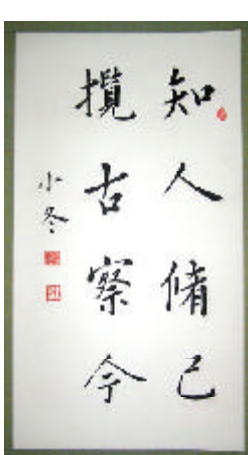 知人脩己
攬古察今
小冬